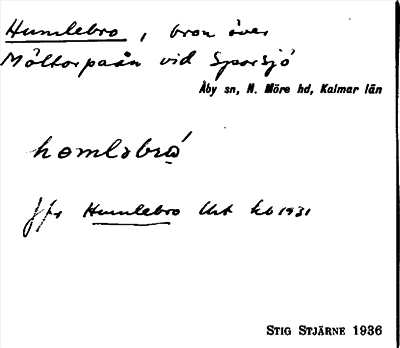 Humlebro, bron över
Möltorpaån vid Sporsjö
Åby sn, N. Möre hd, Kalmar län
homləbró̱
Jfr Humlebro Urt kb 1931
STIG STJÄRNE 1936